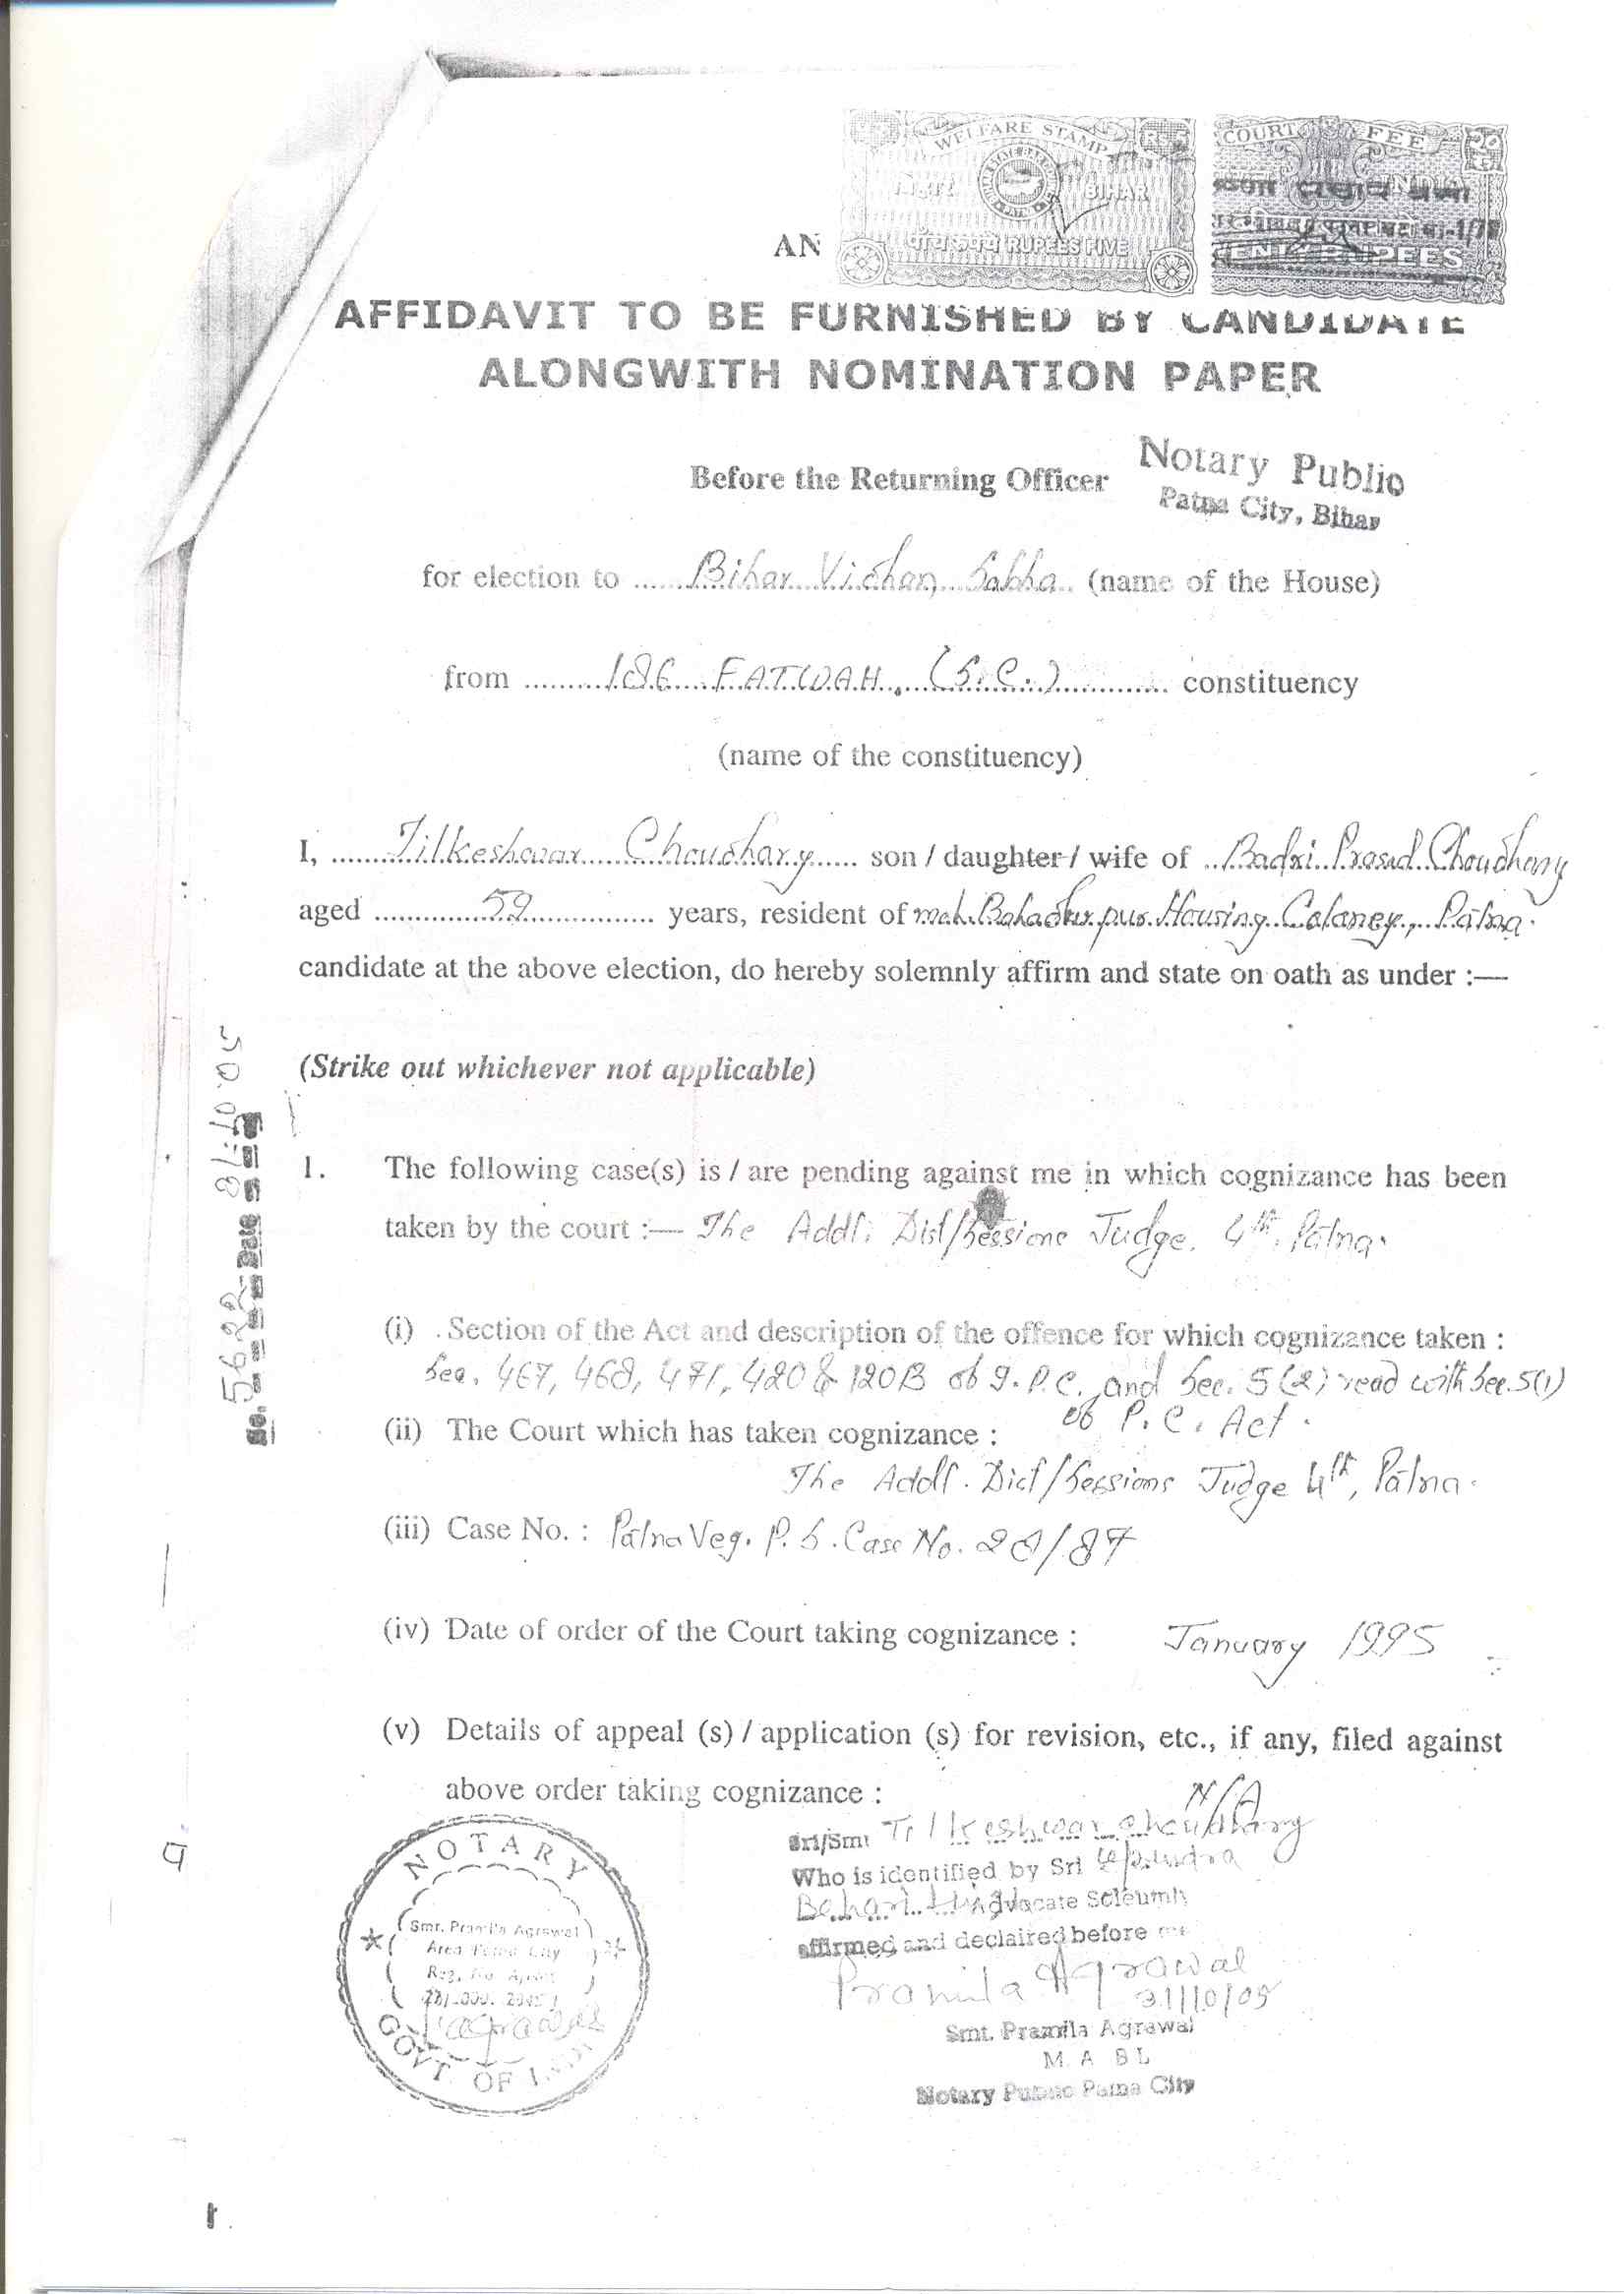 WELFARE STAMP
Rs 5
BIHAR
पाँच रूपये RUPEES FIVE
COURT FEE
INDIA
RUPEES
AN
AFFIDAVIT TO BE FURNISHED BY CANDIDATE
ALONGWITH NOMINATION PAPER
Before the Returning Officer
Notary Public
Patna City, Bihar
for election to ...... Bihar Vidhan Sabha .. (name of the House)
from ......... 186 FATWAH. (S.C.) ............ constituency
(name of the constituency)
I, ........ Tilkeshwar Choudhary ..... son / daughter / wife of .. Badri Prasad Choudhary
aged ............ 59 ............ years, resident of moh. Bahadurpur Housing Colaney, Patna.
candidate at the above election, do hereby solemnly affirm and state on oath as under :—
(Strike out whichever not applicable)
1. The following case(s) is / are pending against me in which cognizance has been
taken by the court :— The Addl. Dist/Sessions Judge. 4th, Patna.
(i) Section of the Act and description of the offence for which cognizance taken :
Sec. 467, 468, 471, 420 & 120B of I.P.C. and Sec. 5(2) read with Sec. 5(1)
of P.C. Act.
(ii) The Court which has taken cognizance :
The Addl. Dist/Sessions Judge 4th, Patna.
(iii) Case No. : Patna Veg. P.S. Case No. 28/87
(iv) Date of order of the Court taking cognizance : January 1995
(v) Details of appeal (s) / application (s) for revision, etc., if any, filed against
above order taking cognizance : N/A
No. 5622 Date
Sri/Smt Tilkeshwar Choudhary
Who is identified by Sri Upendra
Advocate Soleumly
affirmed and declaired before me
Pramila Agrawal
31/10/05
Smt. Pramila Agrawal
M. A B L
Notary Public Patna City
NOTARY
Smt. Pramila Agrawal
Area Patna City
GOVT. OF INDIA
1